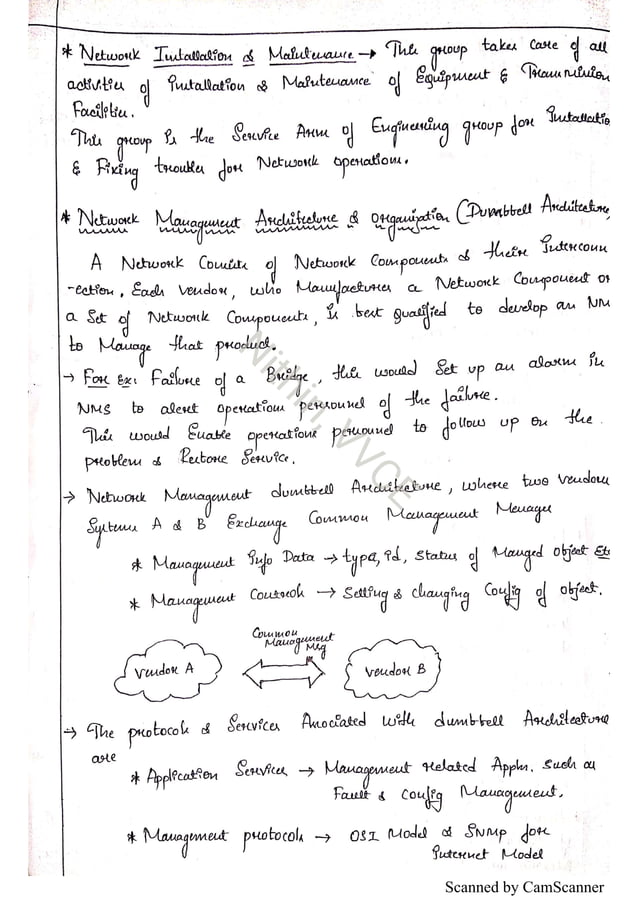 * Network Installation & Maintenance → This group takes care of all
activities of Installation & Maintenance of Equipment & Transmission
Facilities.
This group is the Service Arm of Engineering group for Installatio
& Fixing troubles for Network operations.
* Network Management Architecture & organization (Dumbbell Architecture
A Network Consists of Network Components & their Interconn
-ection. Each vendor, who Manufactures a Network Component or
a Set of Network Components, is best qualified to develop an NM
to Manage that product.
→ For Ex: Failure of a Bridge, this would Set up an alarm in
NMS to alert operations personnel of the failure.
This would Enable operations personnel to follow up on the
problem & Restore Service.
→ Network Management dumbbell Architecture, where two vendors
Systems A & B Exchange Common Management Messages
* Management Info Data → type, id, Status of Manged object Etc
* Management Controls → Setting & changing Config of object.
Common
Management
Msg
Vendor A
Vendor B
→ The protocols & Services Associated with dumbbell Architecture
are
* Application Services → Management related Appln. Such as
Fault & Config Management.
* Management protocols → OSI Model & SNMP for
Internet Model
Nithin, VVCE
Scanned by CamScanner